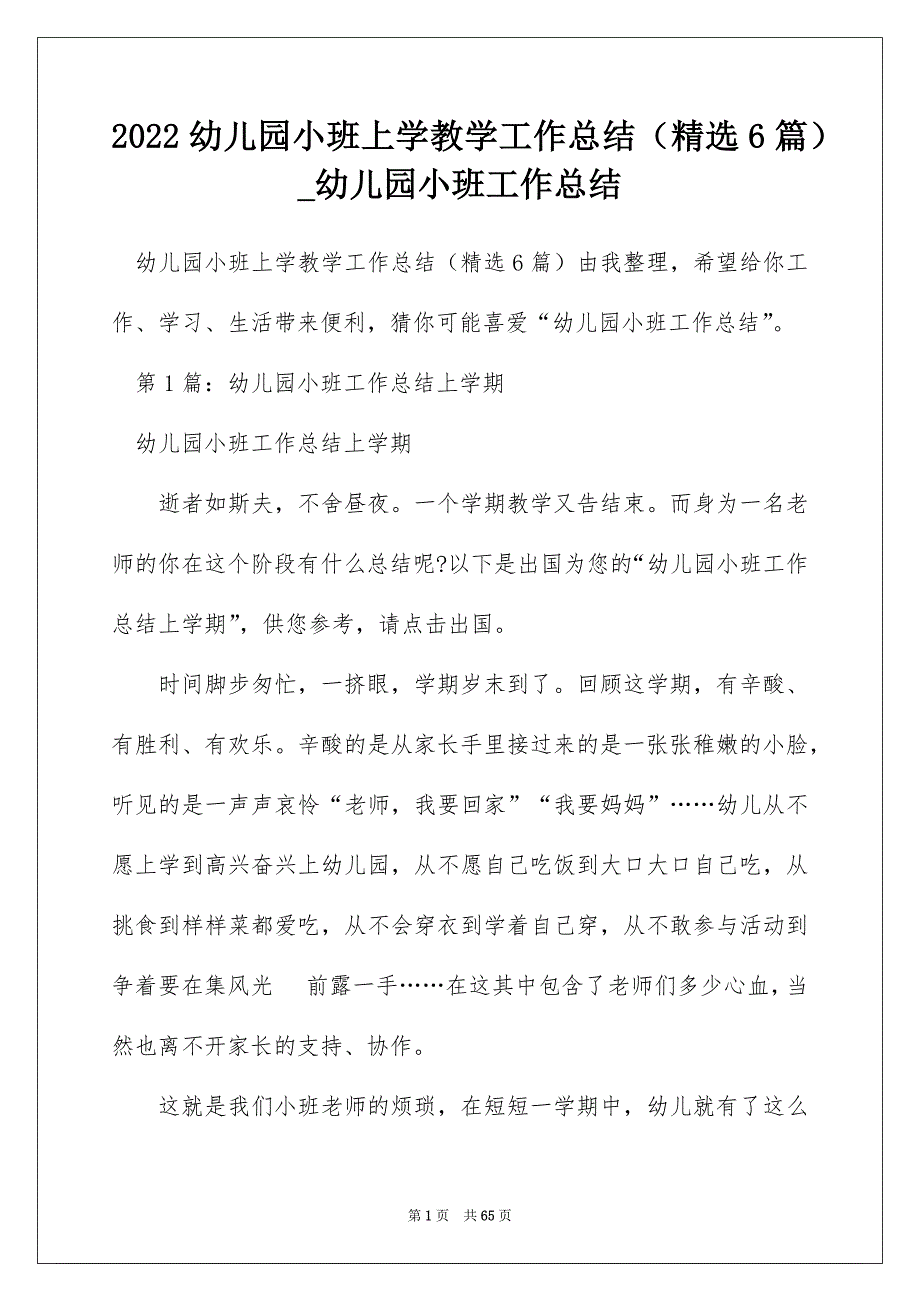 2022 幼儿园小班上学教学工作总结（精选 6 篇）
_幼儿园小班工作总结
幼儿园小班上学教学工作总结（精选 6 篇）由我整理，希望给你工
作、学习、生活带来便利，猜你可能喜爱“幼儿园小班工作总结”。
第 1 篇：幼儿园小班工作总结上学期
幼儿园小班工作总结上学期
逝者如斯夫，不舍昼夜。一个学期教学又告结束。而身为一名老
师的你在这个阶段有什么总结呢?以下是出国为您的“幼儿园小班工作
总结上学期”，供您参考，请点击出国。
时间脚步匆忙，一挤眼，学期岁末到了。回顾这学期，有辛酸、
有胜利、有欢乐。辛酸的是从家长手里接过来的是一张张稚嫩的小脸，
听见的是一声声哀怜“老师，我要回家”“我要妈妈”……幼儿从不
愿上学到高兴奋兴上幼儿园，从不愿自己吃饭到大口大口自己吃，从
挑食到样样菜都爱吃，从不会穿衣到学着自己穿，从不敢参与活动到
争着要在集风光 前露一手……在这其中包含了老师们多少心血，当
然也离不开家长的支持、协作。
这就是我们小班老师的烦琐，在短短一学期中，幼儿就有了这么
第 1 页 共 65 页